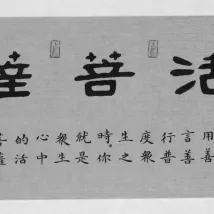 活菩薩
用善
言善
行普
度眾
生之
時你
就是
眾生
心中
的活
菩薩